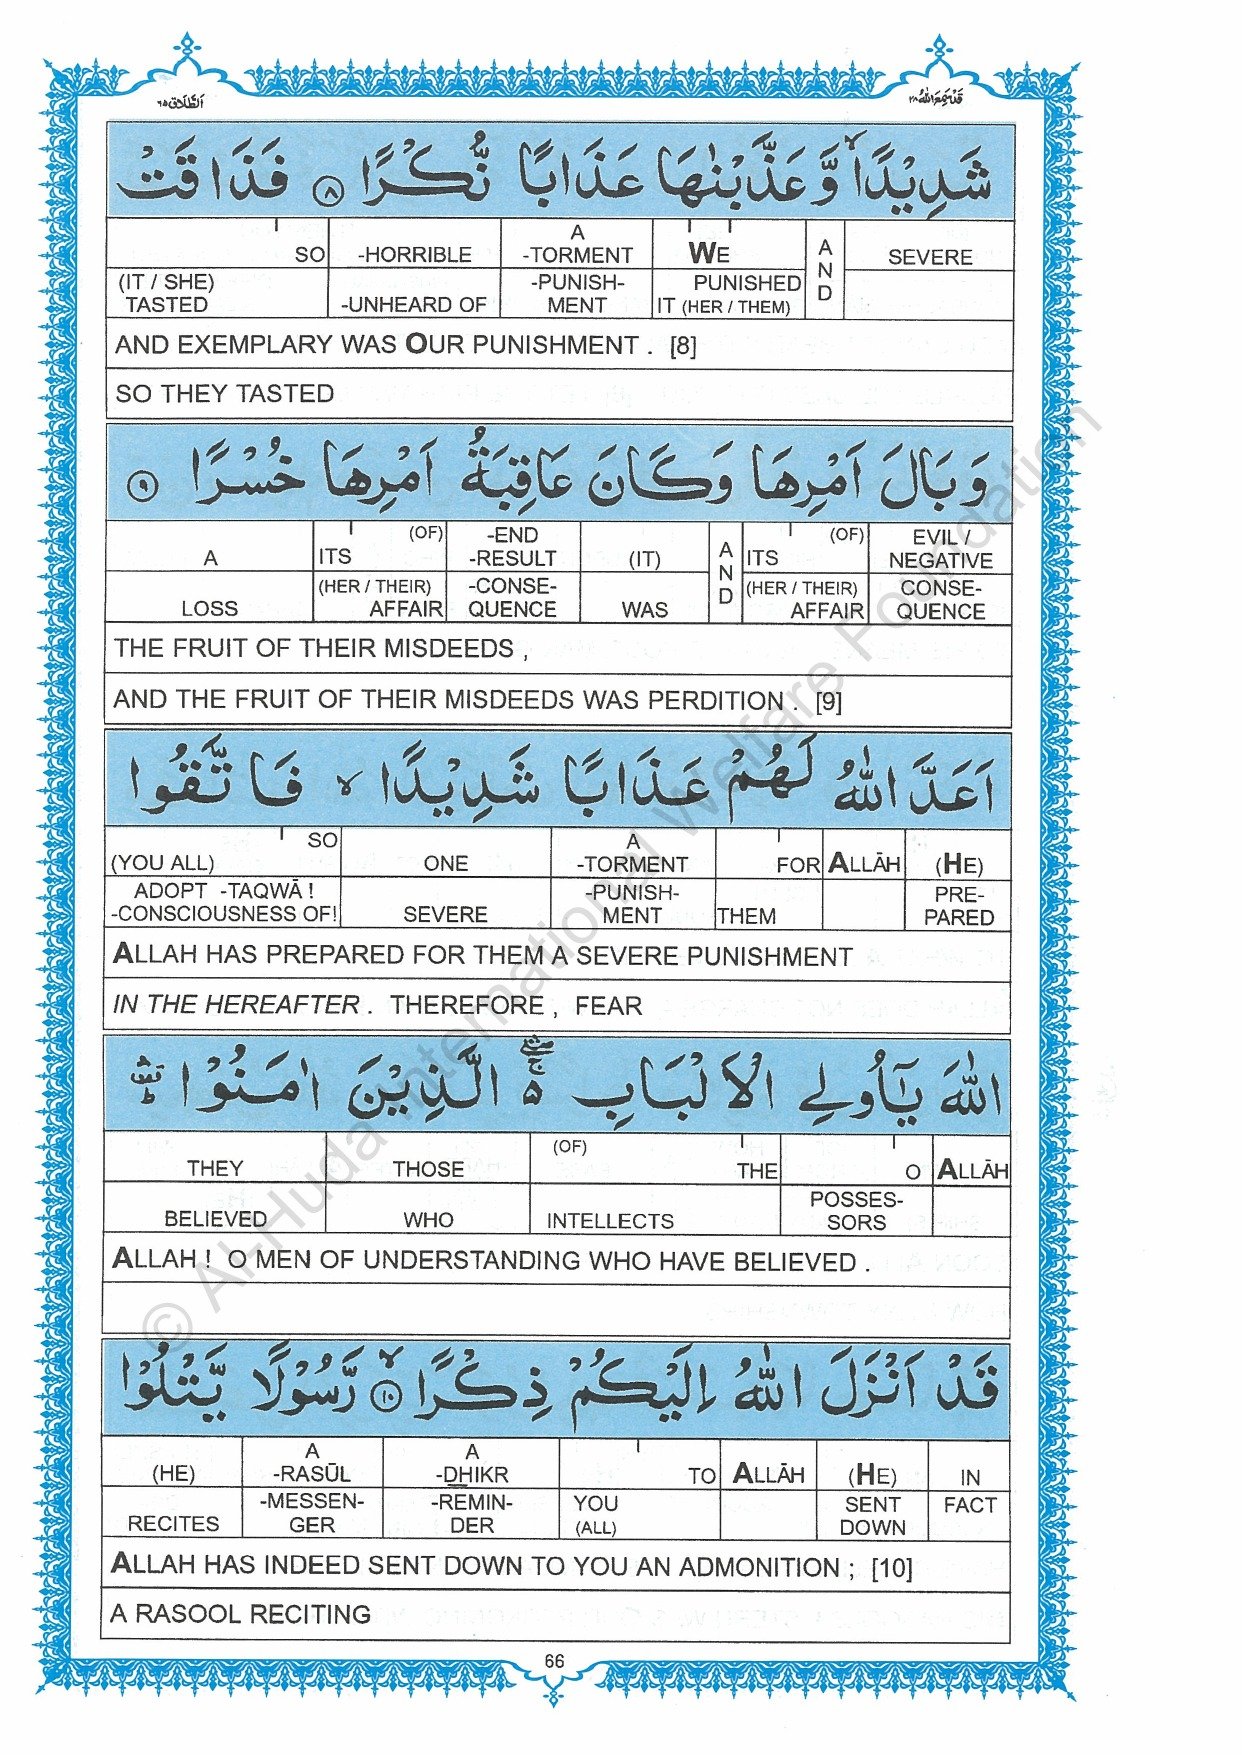 قد سمع الله ٢٨
الطلاق ٦٥
شَدِيْدًا ۙ وَّعَذَّبْنٰهَا عَذَابًا نُّكْرًا ۝٨ فَذَاقَتْ
SO -HORRIBLE A -TORMENT WE AND SEVERE
(IT / SHE) TASTED -UNHEARD OF -PUNISH-MENT PUNISHED IT (HER / THEM)
AND EXEMPLARY WAS OUR PUNISHMENT . [8]
SO THEY TASTED
وَبَالَ اَمْرِهَا وَكَانَ عَاقِبَةُ اَمْرِهَا خُسْرًا ۝٩
A ITS (OF) -END -RESULT (IT) AND ITS (OF) EVIL / NEGATIVE
LOSS (HER / THEIR) AFFAIR -CONSE-QUENCE WAS (HER / THEIR) AFFAIR CONSE-QUENCE
THE FRUIT OF THEIR MISDEEDS ,
AND THE FRUIT OF THEIR MISDEEDS WAS PERDITION . [9]
اَعَدَّ اللّٰهُ لَهُمْ عَذَابًا شَدِيْدًا ۙ فَاتَّقُوا
SO (YOU ALL) ONE A -TORMENT FOR ALLĀH (HE)
ADOPT -TAQWĀ ! -CONSCIOUSNESS OF! SEVERE -PUNISH-MENT THEM PRE-PARED
ALLAH HAS PREPARED FOR THEM A SEVERE PUNISHMENT
IN THE HEREAFTER . THEREFORE , FEAR
اللّٰهَ يٰٓاُولِي الْاَلْبَابِ ۚ۬ۛ ۵ الَّذِيْنَ اٰمَنُوْا ۛ
THEY THOSE (OF) THE O ALLĀH
BELIEVED WHO INTELLECTS POSSES-SORS
ALLAH ! O MEN OF UNDERSTANDING WHO HAVE BELIEVED .
قَدْ اَنْزَلَ اللّٰهُ اِلَيْكُمْ ذِكْرًا ۙ ۝١٠ رَّسُوْلًا يَّتْلُوْا
(HE) A -RASŪL A -DHIKR TO ALLĀH (HE) IN
RECITES -MESSEN-GER -REMIN-DER YOU (ALL) SENT DOWN FACT
ALLAH HAS INDEED SENT DOWN TO YOU AN ADMONITION ; [10]
A RASOOL RECITING
66
© Al-Huda International Welfare Foundation